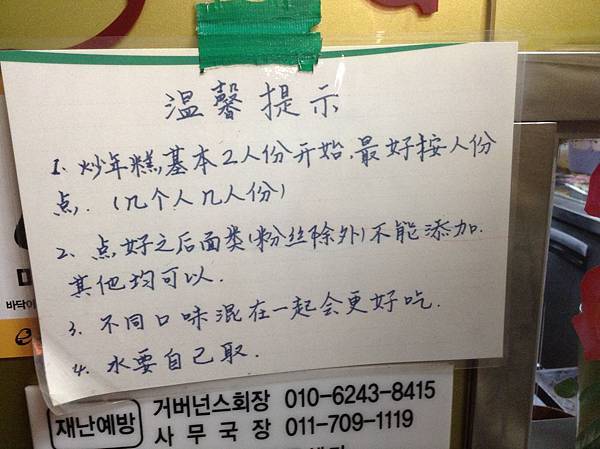 温馨提示
1. 炒年糕,基本2人份开始,最好按人份
点.(几个人几人份)
2、点好之后面类(粉丝除外)不能添加.
其他均可以.
3. 不同口味混在一起会更好吃.
4. 水要自己取.
바닥
재난예방
거버넌스회장 010-6243-8415
사무국장 011-709-1119